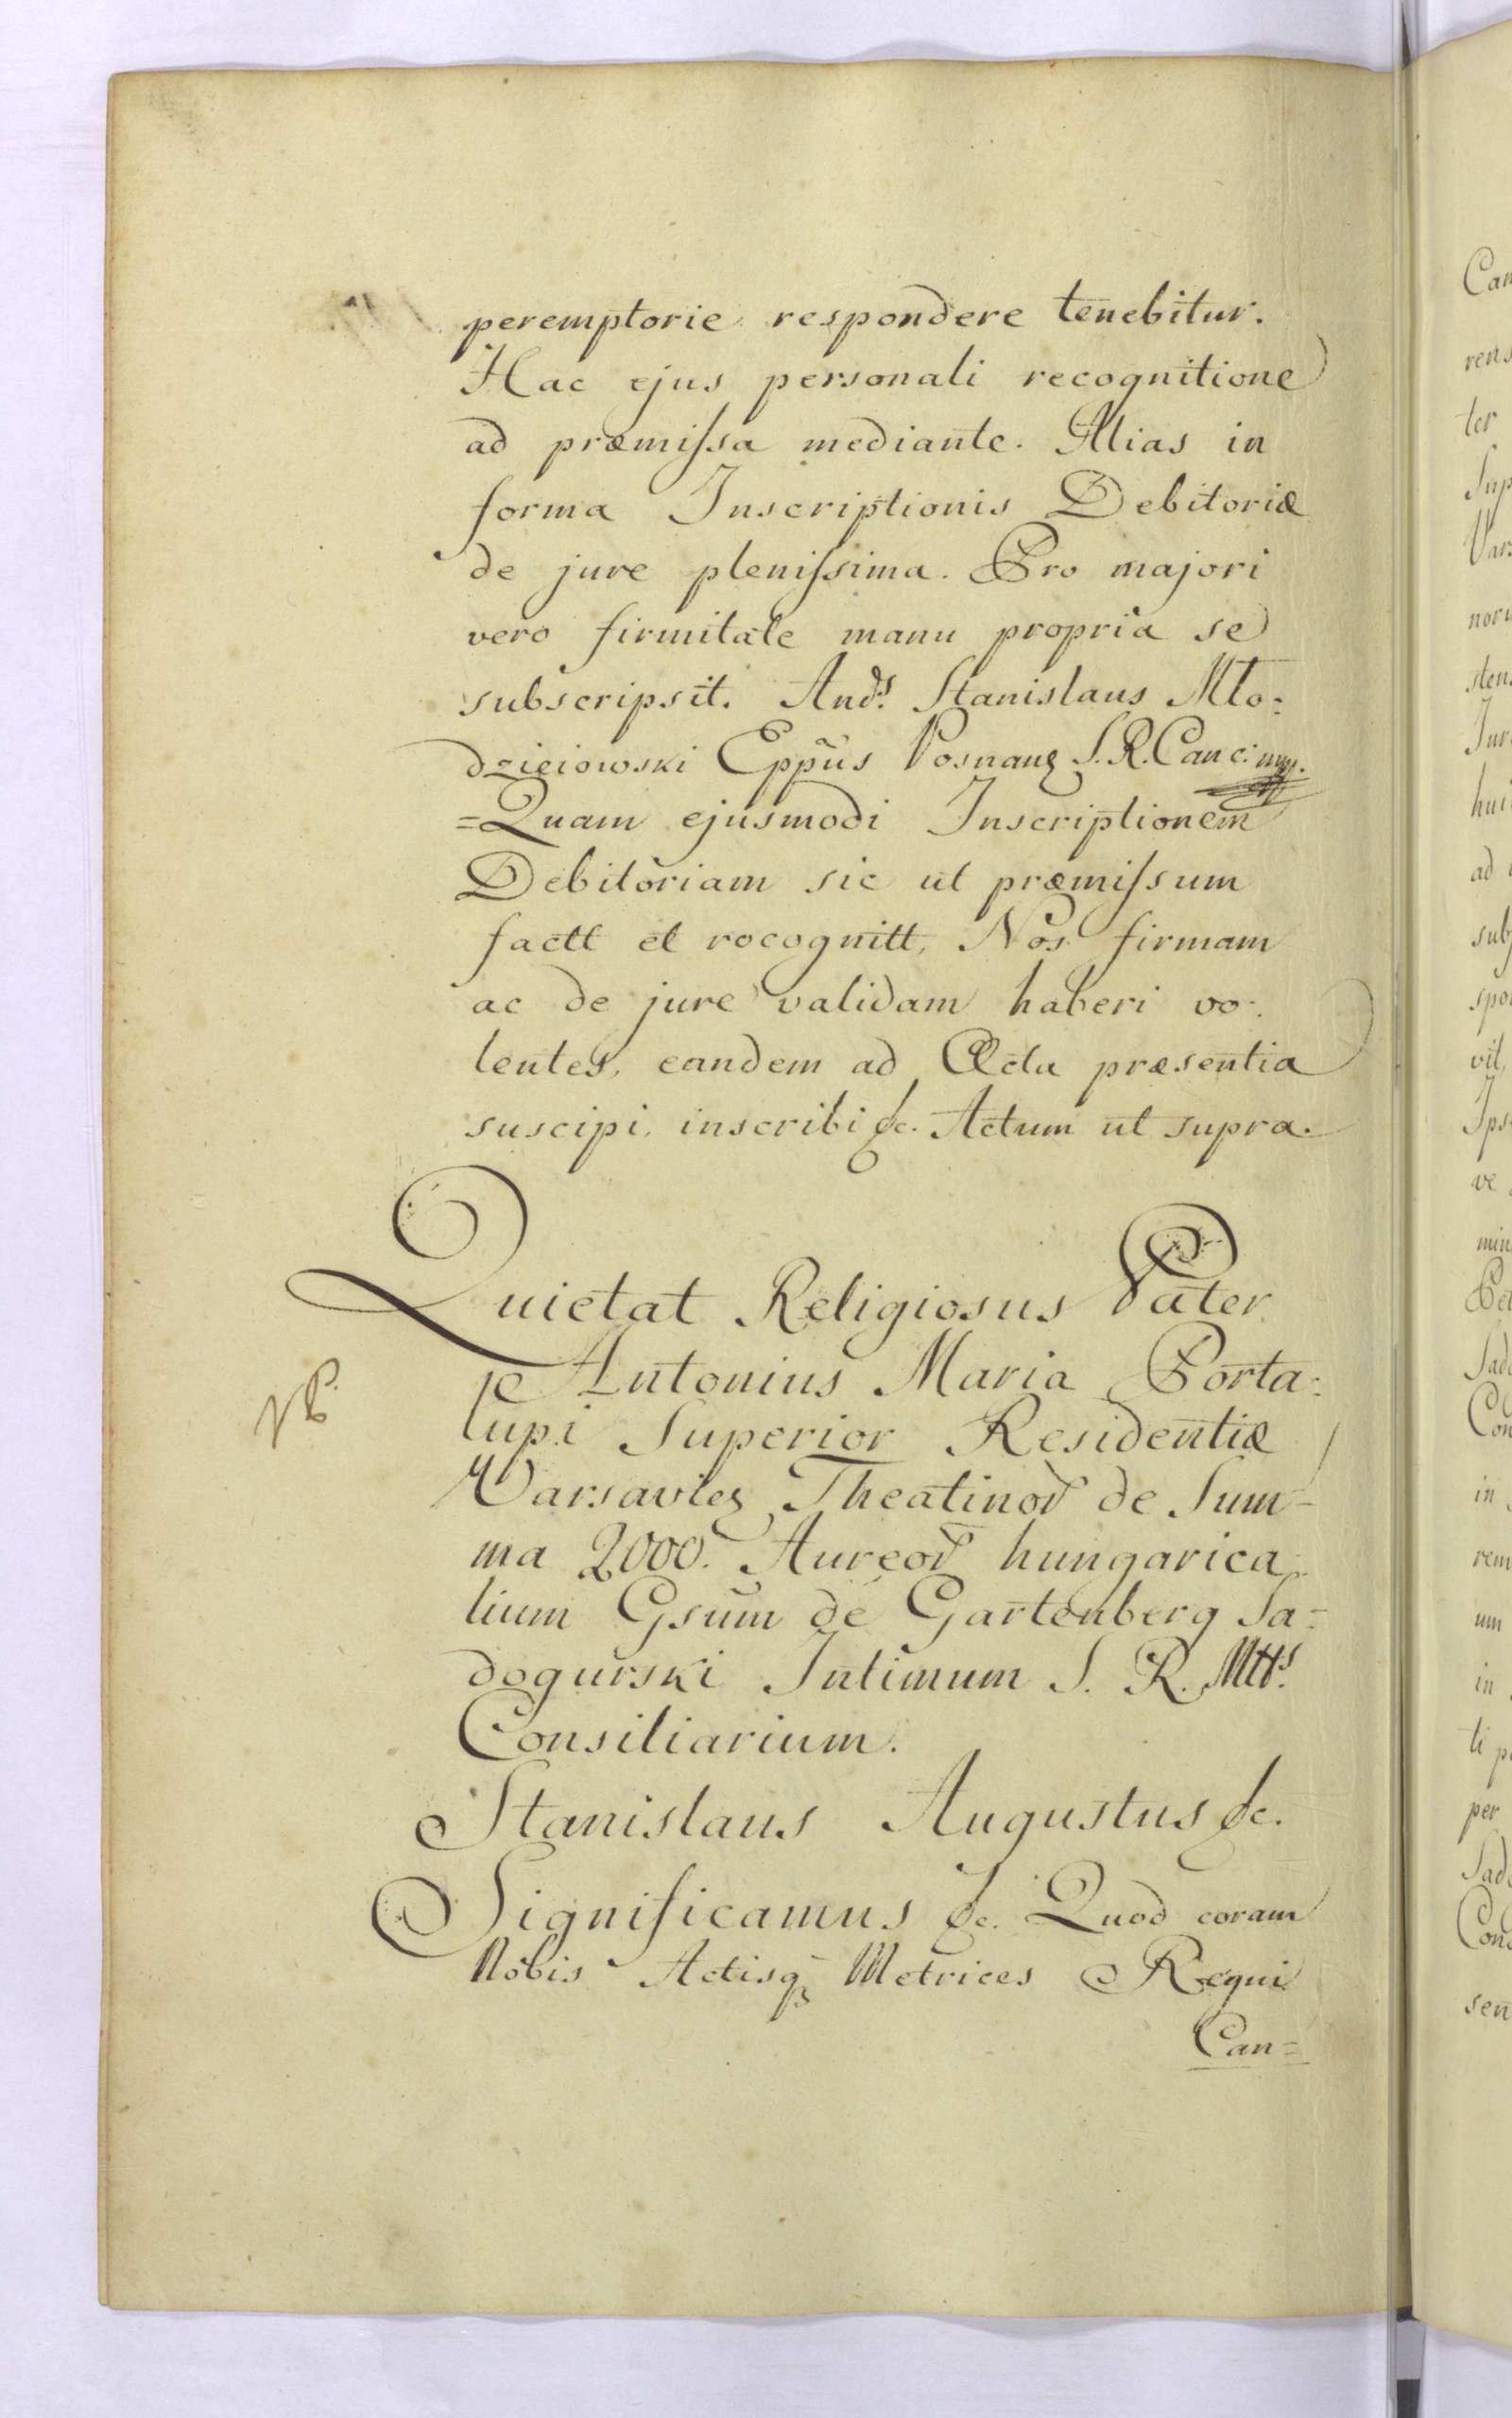 peremptorie respondere tenebitur.
Hac ejus personali recognitione
ad præmiſsa mediante. Alias in
forma Inscriptionis Debitoriæ
de jure pleniſsima. Pro majori
vero firmitate manu propria se
subscripsit. Andͬs Stanislaus Mło:
dzieiowski Eppũs Posnanꝫ S. R. Canc: mpp.
=Quam ejusmodi Inscriptionem
Debitoriam sic ut præmiſsum
factt et rocognitt, Nos firmam
ac de jure validam haberi vo:
lentes, eandem ad Acta præsentia
suscipi, inscribi &c. Actum ut supra.
Quietat Religiosus Pater
Antonius Maria Porta:
lupi Superior Residentiæ
Varsavieꝫ Theatinoꝝ de Sum=
ma 2000. Aureoꝝ hungarica
lium Gsũm de Gartenberg Sa=
dogurski Intimum S. R. Mttͥs.
Consiliarium.
Stanislaus Augustus &c.
Significamus &c. Quod coram
Nobis Actisqꝫ Metrices Regni
Can=